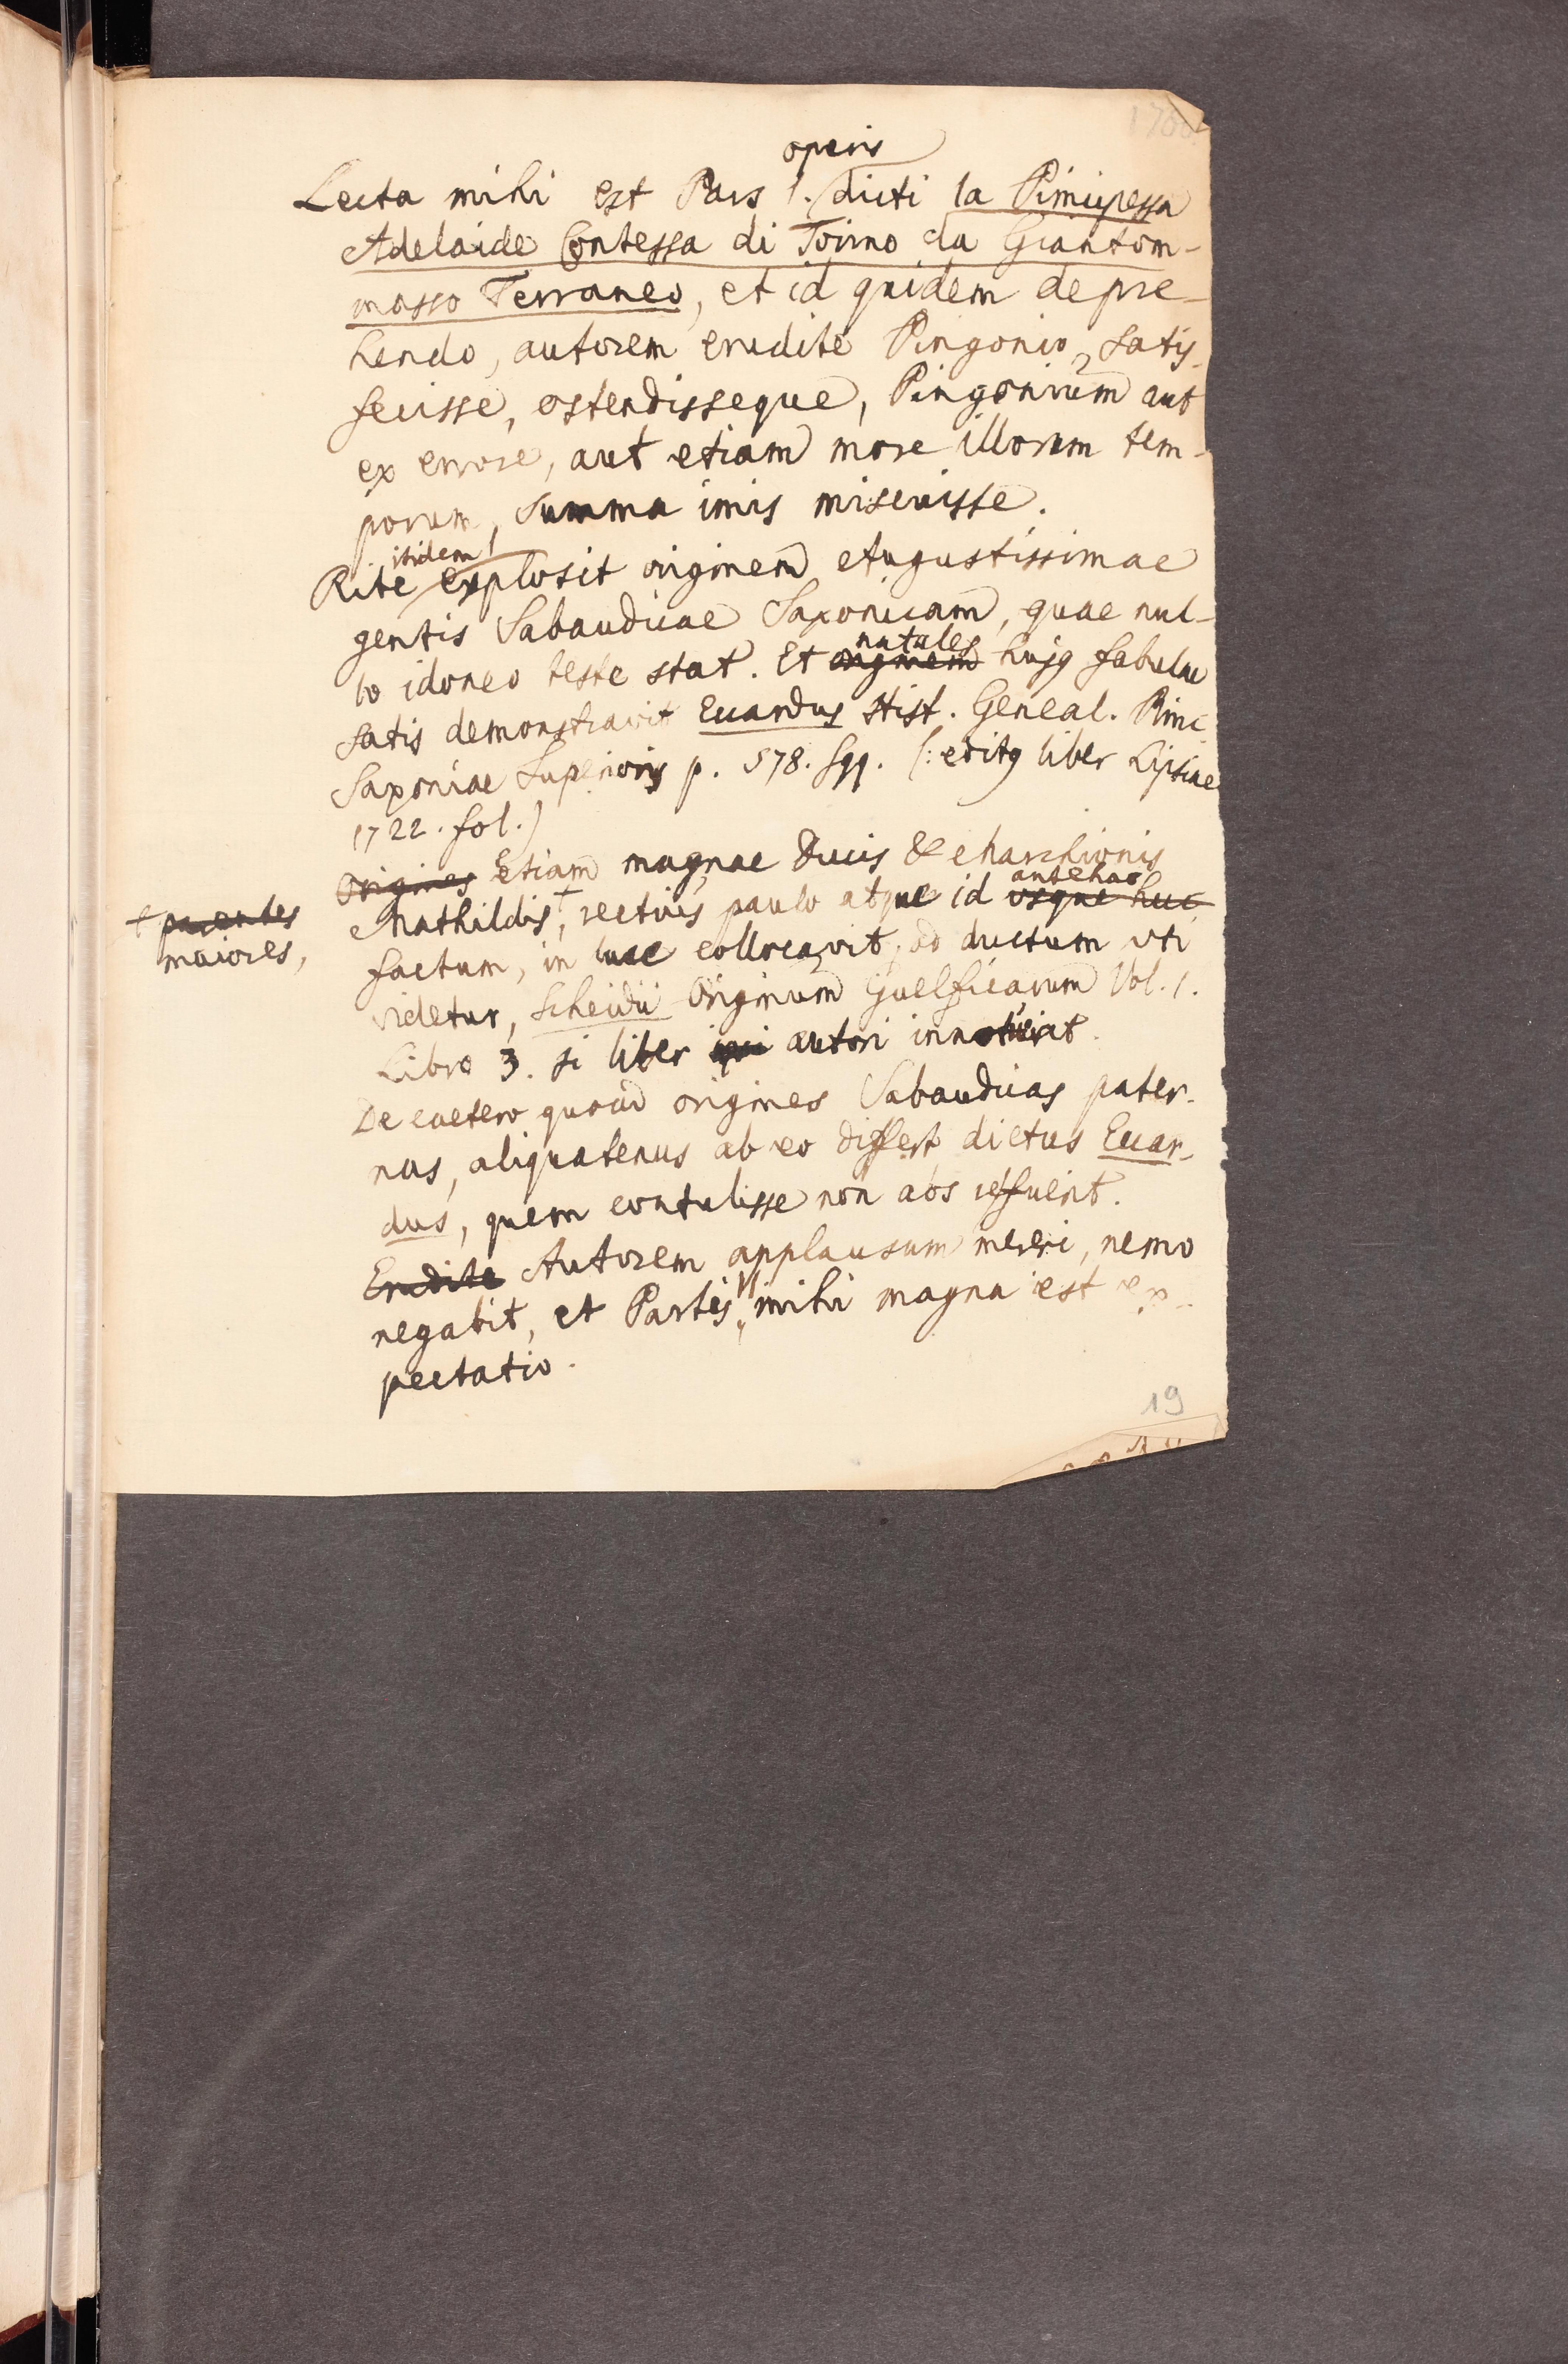 operis
Lecta mihi est Pars 1. dicti la Principessa
Adelaide Contessa di Torino da Giantom-
masso Terraneo, et id quidem depre-
hendo, autorem erudite Pingonio satis-
fecisse, ostendisseque, Pingonium aut
ex errore, aut etiam more illorum tem-
porum, summa imis miscuisse.
itidem
Rite explosit originem Augustissimae
gentis Sabaudicae Saxonicam, quae nul-
lo idoneo teste stat. Et originem natales hujq fabulae
satis demonstravit Eccardus Hist. Geneal. Princ.
Saxoniae Superioris p. 578. sqq. (: editq liber Lipsiae
1722. fol.)
Origines Etiam magnae Ducis & Marchionis
Mathildis, † rectius paulo atque id usque huc antehac
† parentes
maiores,
factum, in luce collocavit, ad ductum uti
videtur, Scheidii Originum Guelficarum Vol. 1.
Libro 3. si liber ipsi autori innotuerat.
De caetero quoad origines Sabaudicas pater-
nas, aliquatenus ab eo differt dictus Eccar-
dus, quem contulisse non abs re fuerit.
Erudite Autorem applausum mereri, nemo
negabit, et Partis II mihi magna est ex-
pectatio.
19